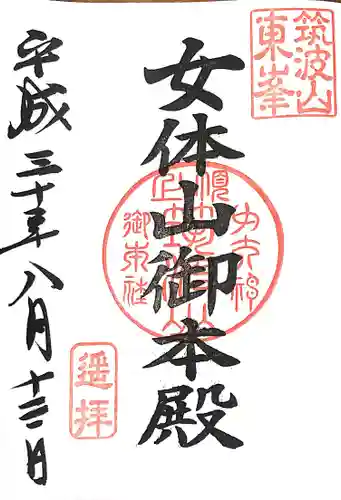 筑波山
東峯
女体山御本殿
遥拝
平成三十年八月十三日